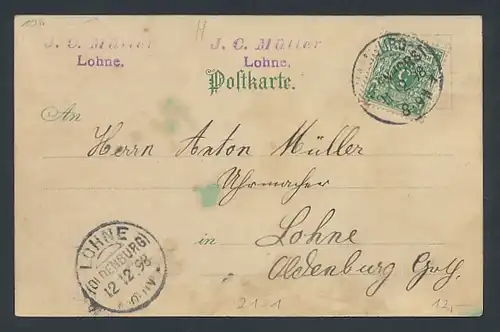 J. C. Müller
Lohne.
J. C. Müller
Lohne.
H
Postkarte.
An
Herrn Anton Müller
Uhrmacher
in Lohne
Oldenburg Grhh.
LOHNE
(OLDENBURG)
12 12 98
21-1
12,-